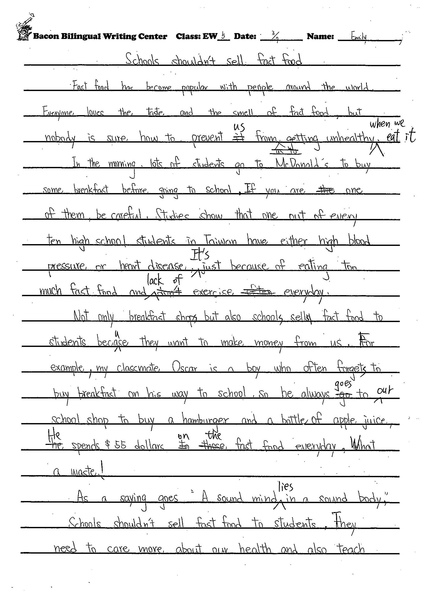 Bacon Bilingual Writing Center Class: EW 3 Date: 3/1 Name: Emily
Schools shouldn't sell fast food
Fast food has become popular with people around the world.
Everyone loves the taste and the smell of fast food, but
when we
us
nobody is sure how to prevent from getting unhealthy eat it
In the morning, lots of students go to McDonald's to buy
some breakfast before going to school. If you are the one
of them, be careful. Studies show that one out of every
ten high school students in Taiwan have either high blood
It's
pressure, or heart disease, just because of eating too
lack of
much fast food and exercise everyday.
Not only breakfast shops but also schools sells fast food to
u
students becase they want to make money from us. For
example, my classmate Oscar is a boy who often forgets to
goes our
buy breakfast on his way to school, so he always go to
school shop to buy a hamburger and a bottle of apple juice,
He on the
he spends $55 dollars in those fast food everyday. What
a waste!
lies
As a saying goes "A sound mind in a sound body,"
Schools shouldn't sell fast food to students. They
need to care more about our health and also teach